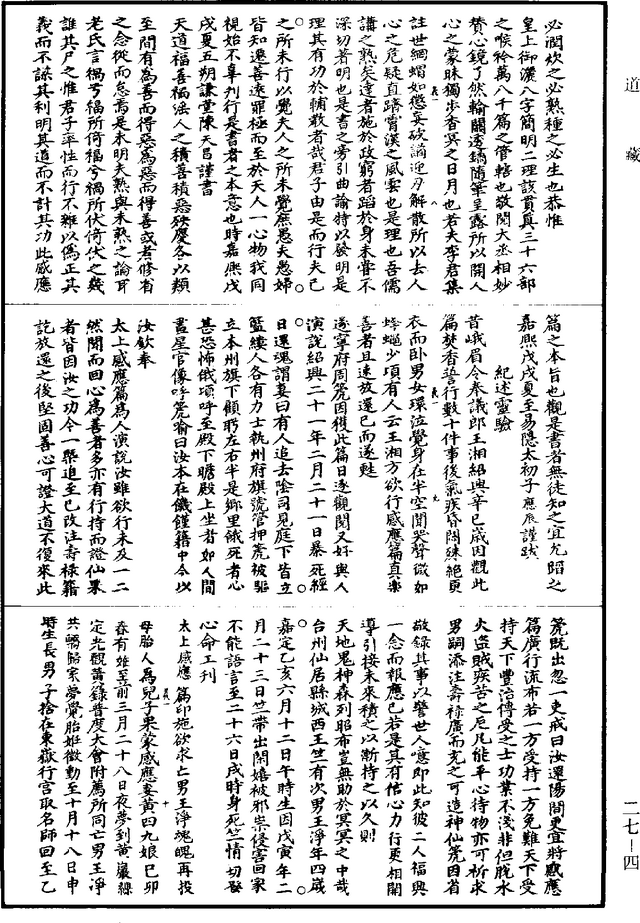 道藏
必潤炊之必熟種之必生也恭惟
皇上御灑八字簡明二理該貫真三十六部
之喉衿萬八千篇之管轄也敬閱大丞相妙
贊心鏡了然闢透鑰隨筆呈露所以開人
心之蒙昧獨步杳冥之日月也若夫李君集
註世網蝟如懲妄砍諭迎刃解散所以去人
心之危疑直躋霄漢之風雲也是理也吾儒
講之熟矣達者施於政窮者蹈於身未嘗不
深切著明也是書之旁引曲諭特以發明是
理其有功於輔教者哉君子由是而行夫己
之所未行以覺夫人之所未覺庶愚夫愚婦
皆知遷善遠罪極而至於天人一心物我同
視始不辜刋行是書者之本意也時嘉熙戊
戌夏五朔謙堂陳天昌謹書
天道福善禍淫人之積善積惡殃慶各以類
至間有為善而得惡為惡而得善或者修省
之念從而怠焉是未明夫熟與未熟之論耳
老氏言禍兮福所倚福兮禍所伏倚伏之幾
誰其尸之惟君子率性而行不難以為正其
義而不謀其利明其道而不計其功此感應
篇之本旨也觀是書者無徒知之宜允蹈之
嘉熙戊戌夏至易隱太初子應辰謹跋
紀述靈驗
昔峨眉令奉議郎王湘紹興辛巳歲因觀此
篇焚香誓行數十件事後氣疾昏悶殊絕更
衣而卧男女環泣覺身在半空聞哭聲微如
蜂蠅少頃有人云王湘方欲行感應篇真樂
善者且速放還已而遂甦
遂寧府周箎因獲此篇日逐觀閱又好與人
演說紹興二十一年二月二十一日暴死經
日還魂謂妻曰有人追去陰司見庭下皆立
籃縷人各有力士執州府旗號管押箎被驅
立本州旗下顧眄左右半是鄉里餓死者心
甚恐怖俄項呼至殿下瞻殿上坐者如人間
畫星官像呼箎喻曰汝本在饑饉籍中今以
汝欽奉
太上感應篇為人演說汝雖欲行未及一二
然聞而回心為善者多亦有行持而證仙果
者皆因汝之功令一槩追至已改注壽祿籍
訖放還之後堅固善心可證大道不復來此
箎既出忽一吏戒曰汝還陽間更宜將感應
篇廣行流布若一方受持一方免難天下受
持天下豐治傳受之士功業不淺非但脫水
火盜賊疾苦之厄凡能平心待物亦可祈求
男嗣添注壽祿廣而充之可造神仙箎因省
敬錄其事以擧世人噫即此知彼二人福興
一念而報應已若是其有信心力行更相開
導引接未來積之以漸持之以久則
天地鬼神森列昭布豈無助於冥冥之中哉
台州仙居縣城西王竺有次男王淨年四歲
嘉定乙亥六月十二日午時生因戊寅年二
月二十三日竺帶出閑嬉被邪崇侵害回家
不能語言至二十六日戌時身死竺情切發
心命工刋
太上感應篇印施欲求亡男王淨魂魄再投
母胎人為兒子果蒙感應妻黃四九娘己卯
春有娠至前三月二十八日夜夢到黃巖縣
定光觀黃籙普度大會附薦所同亡男王淨
共轎歸家夢覺胎姙微動至十月十八日申
時生長男子捨在東嶽行宮取名師回至乙
二七—四